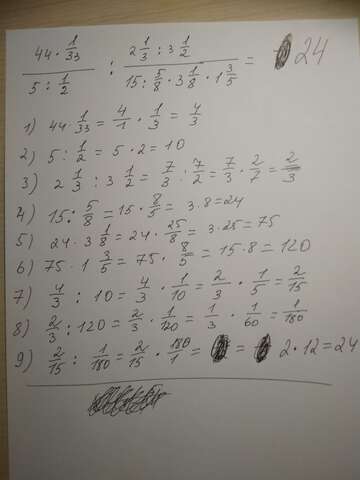 (44 · 1/33)/(5 : 1/2) : (2 1/3 : 3 1/2)/(15 : 5/8 · 3 1/8 · 1 3/5) = 24
1) 44 · 1/33 = 4/1 · 1/3 = 4/3
2) 5 : 1/2 = 5 · 2 = 10
3) 2 1/3 : 3 1/2 = 7/3 : 7/2 = 7/3 · 2/7 = 2/3
4) 15 : 5/8 = 15 · 8/5 = 3 · 8 = 24
5) 24 · 3 1/8 = 24 · 25/8 = 3 · 25 = 75
6) 75 · 1 3/5 = 75 · 8/5 = 15 · 8 = 120
7) 4/3 : 10 = 4/3 · 1/10 = 2/3 · 1/5 = 2/15
8) 2/3 : 120 = 2/3 · 1/120 = 1/3 · 1/60 = 1/180
9) 2/15 : 1/180 = 2/15 · 180/1 = = 2 · 12 = 24